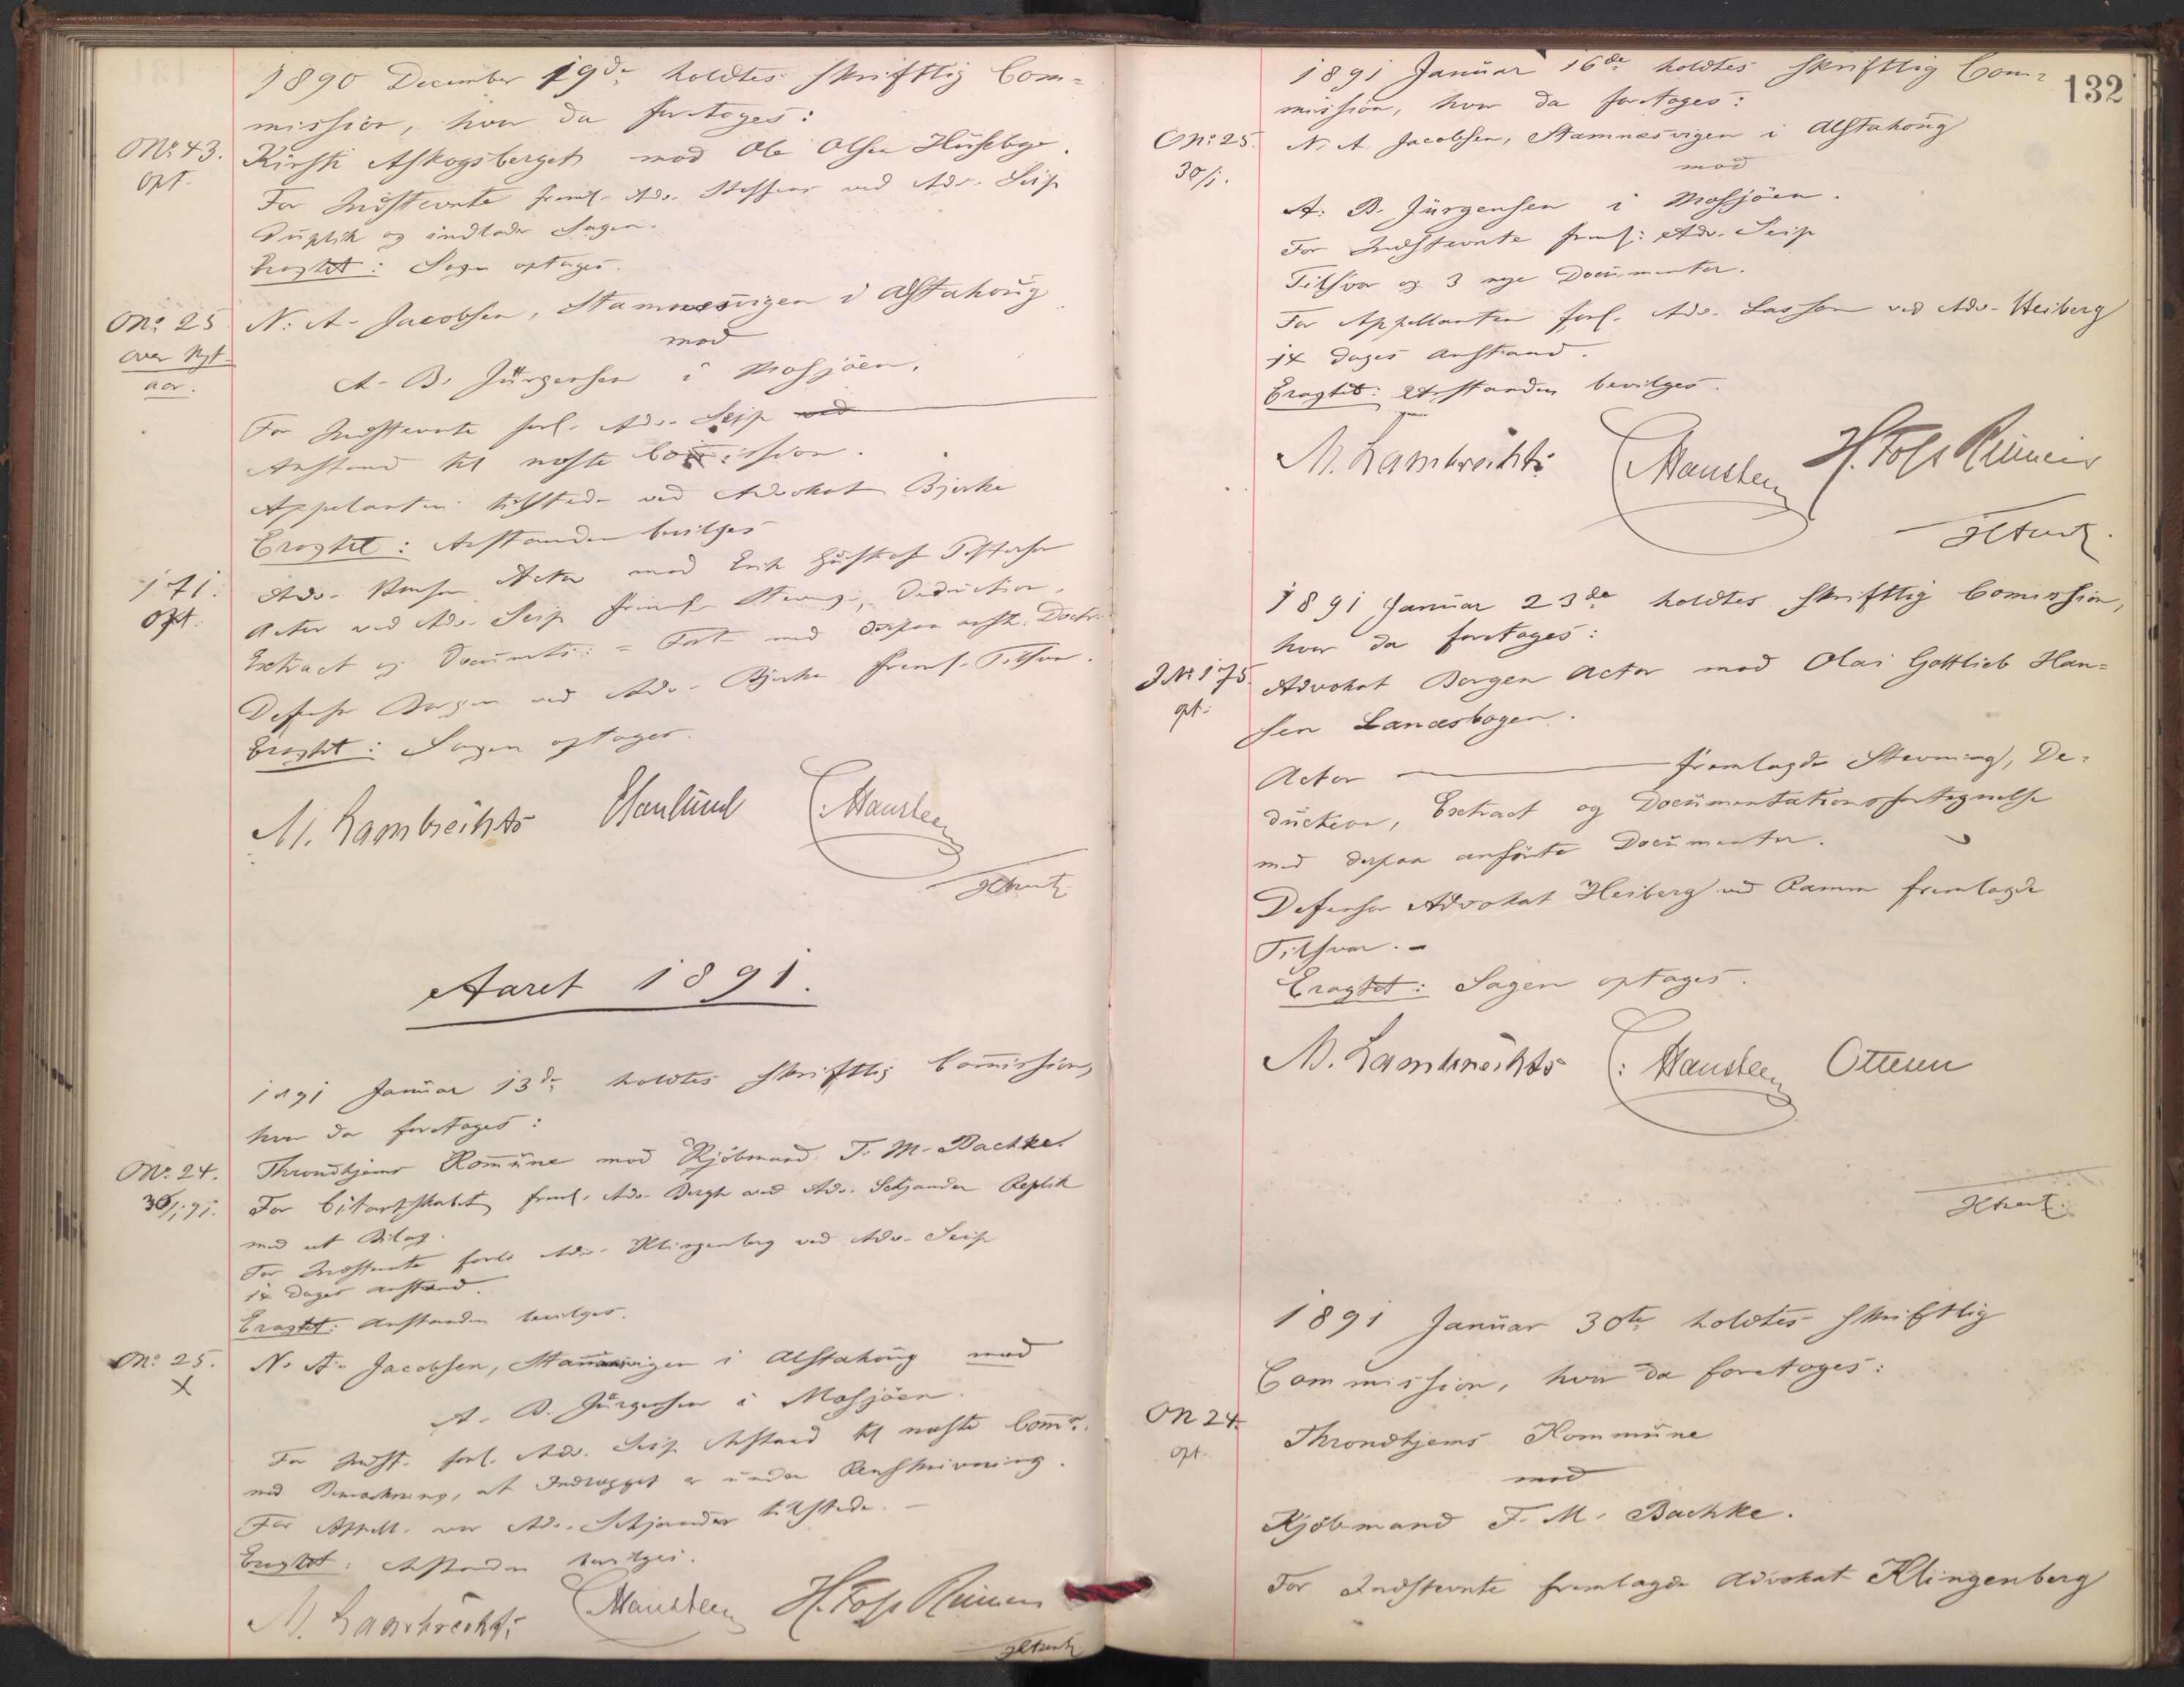 1890 December 19de holdtes skriftlig Com=
mission, hvor da foretoges:
No: 43. Kirsti Askogsberget mod Ole Olsen Huseby.
opt. For Indstevnte freml. Adv. Steffens ved Adv. Seip
Duplik og indlader Sagen.
Eragtet: Sagen optages.
No: 25 N. A. Jacobsen, Stamnæsvigen i Alstahoug
over Nyt- mod
aar. A. B. Jürgensen i Mosjöen.
For Indstevnte forl. Adv. Seip
Anstand til næste Comission.
Appelanten tilstede ved Advokat Bjerke
Eragtet: Anstanden bevilges
171. Adv. Actor mod Erik Gustaf
opt. Actor ved Adv. Seip freml. Stevning, Deduction,
Extract og med derpaa anf.
Defensor Borgen ved Adv. Bjerke freml. Tilsvar.
Eragtet: Sagen optages.
M. Lambrechts C. Hansteen
Aaret 1891.
1891 Januar 13de holdtes skriftlig Comission,
hvor da foretoges:
No: 24. Throndhjems Komune mod Kjöbmand F. M. Bachke.
30/1.91. For Citantskabet freml. Adv. Bergh ved Adv. Schjander Replik
med et Bilag.
For Indstevnte forl. Adv. Klingenberg ved Adv. Seip
14 Dages Anstand.
Eragtet: Anstanden bevilges.
No: 25. N. A. Jacobsen, Stamnæsvigen i Alstahoug mod
X A. B. Jürgensen i Mosjöen.
For Indst. forl. Adv. Seip Anstand til næste Comn.
med Bemærkning, at Indlægget er under Renskrivning.
For Appell. var Adv. Schjander tilstede. –
Eragtet: Anstanden bevilges.
M. Lambrechts C. Hansteen H. Foss Reimers
132
1891 Januar 16de holdtes skriftlig Com=
mission, hvor da foretoges:
No: 25. N. A. Jacobsen, Stamnæsvigen i Alstahoug
30/1. mod
A. B. Jürgensen i Mosjöen.
For Indstevnte freml: Adv. Seip
Tilsvar og 3 nye Documenter.
For Appellanten forl. Adv. Lasson ved Adv. Heiberg
14 Dages Anstand.
Eragtet: Anstanden bevilges.
M. Lambrechts C. Hansteen H. Foss Reimers
1891 Januar 23de holdtes skriftlig Comission,
hvor da foretoges:
J No 175. Advokat Borgen Actor mod Olai Gottlieb Han=
opt. sen Lanæsbogen.
Actor — fremlagde Stevning, De=
duction, Extract og Documentationsfortegnelse
med derpaa anførte Documenter.
Defensor Advokat Heiberg ved Ramm fremlagde
Tilsvar. –
Eragtet: Sagen optages.
M. Lambrechts C. Hansteen Ottesen
1891 Januar 30te holdtes skriftlig
Commission, hvor da foretoges:
No 24. Throndhjems Kommune
opt. mod
Kjöbmand F. M. Bachke.
For Indstevnte fremlagde Advokat Klingenberg